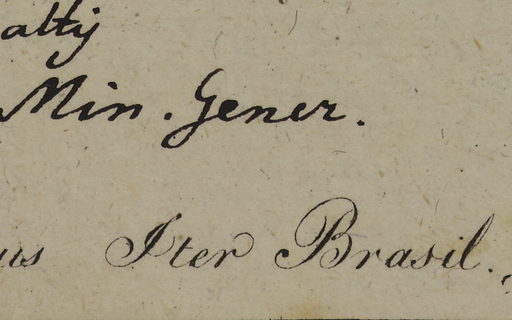 alty
Min. Gener.
us Iter Brasil.